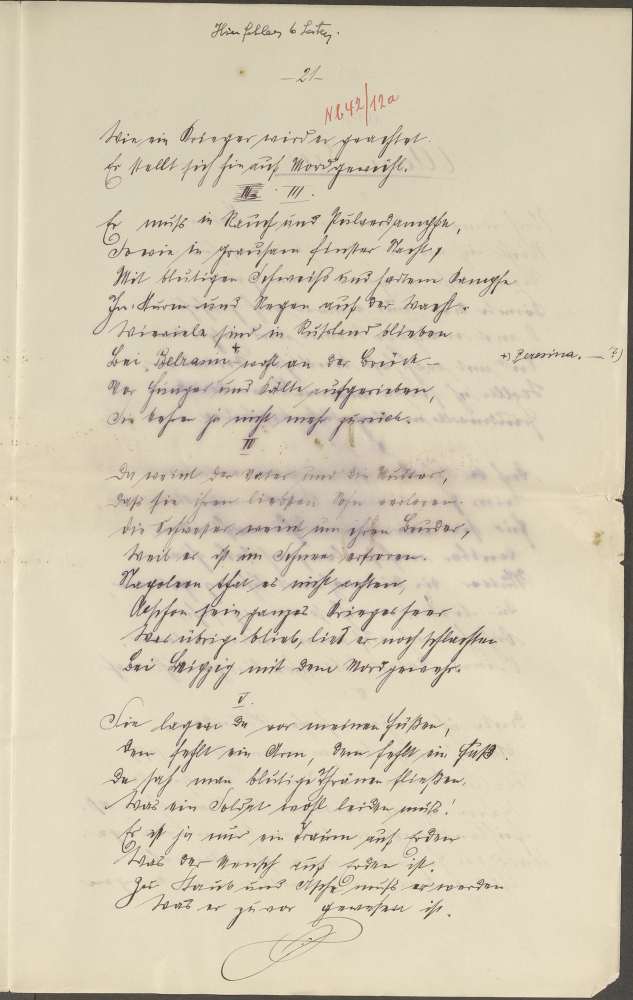 Hier fehlen 6 Seiten.
- 21 -
N642/12a
Wie ein Krieger wird er geachtet.
Er stellt sich hin auf Mordgewühl.
III.
Er muß in Rauch und Pulverdampfe,
So wie in grausam finster Nacht,
Mit blutigen Schweiß und hartem Kampfe
In Sturm und Regen auf der Wacht.
Wieviele sind in Rußland blieben
Bei "Belrann"+ wohl an der Brück -
+) Beresina. - ?)
Vor Hunger und Kälte aufgerieben,
Sie kehren ja nicht mehr zurück.
IV
Da weint der Vater und die Mutter,
Daß sie ihren liebsten Sohn verloren.
Die Schwester weint um ihren Bruder,
Weil er ist im Schnee erfroren.
Napoleon that es nicht achten,
Obschon sein ganzes Kriegesheer
Was übrig blieb, ließ er noch schlachten
Bei Leipzig mit dem Mordgewehr.
V.
Sie lagen da vor meinen Füßen,
Dem fehlt ein Arm, dem fehlt ein Fuß.
Da sah man blutige Thränen fließen.
Was ein Soldat wohl leiden muß!
Er ist ja nur ein Traum auf Erden
Was der Mensch auf Erden ist.
Zu Staub und Asche muß er werden
Was er zuvor gewesen ist.